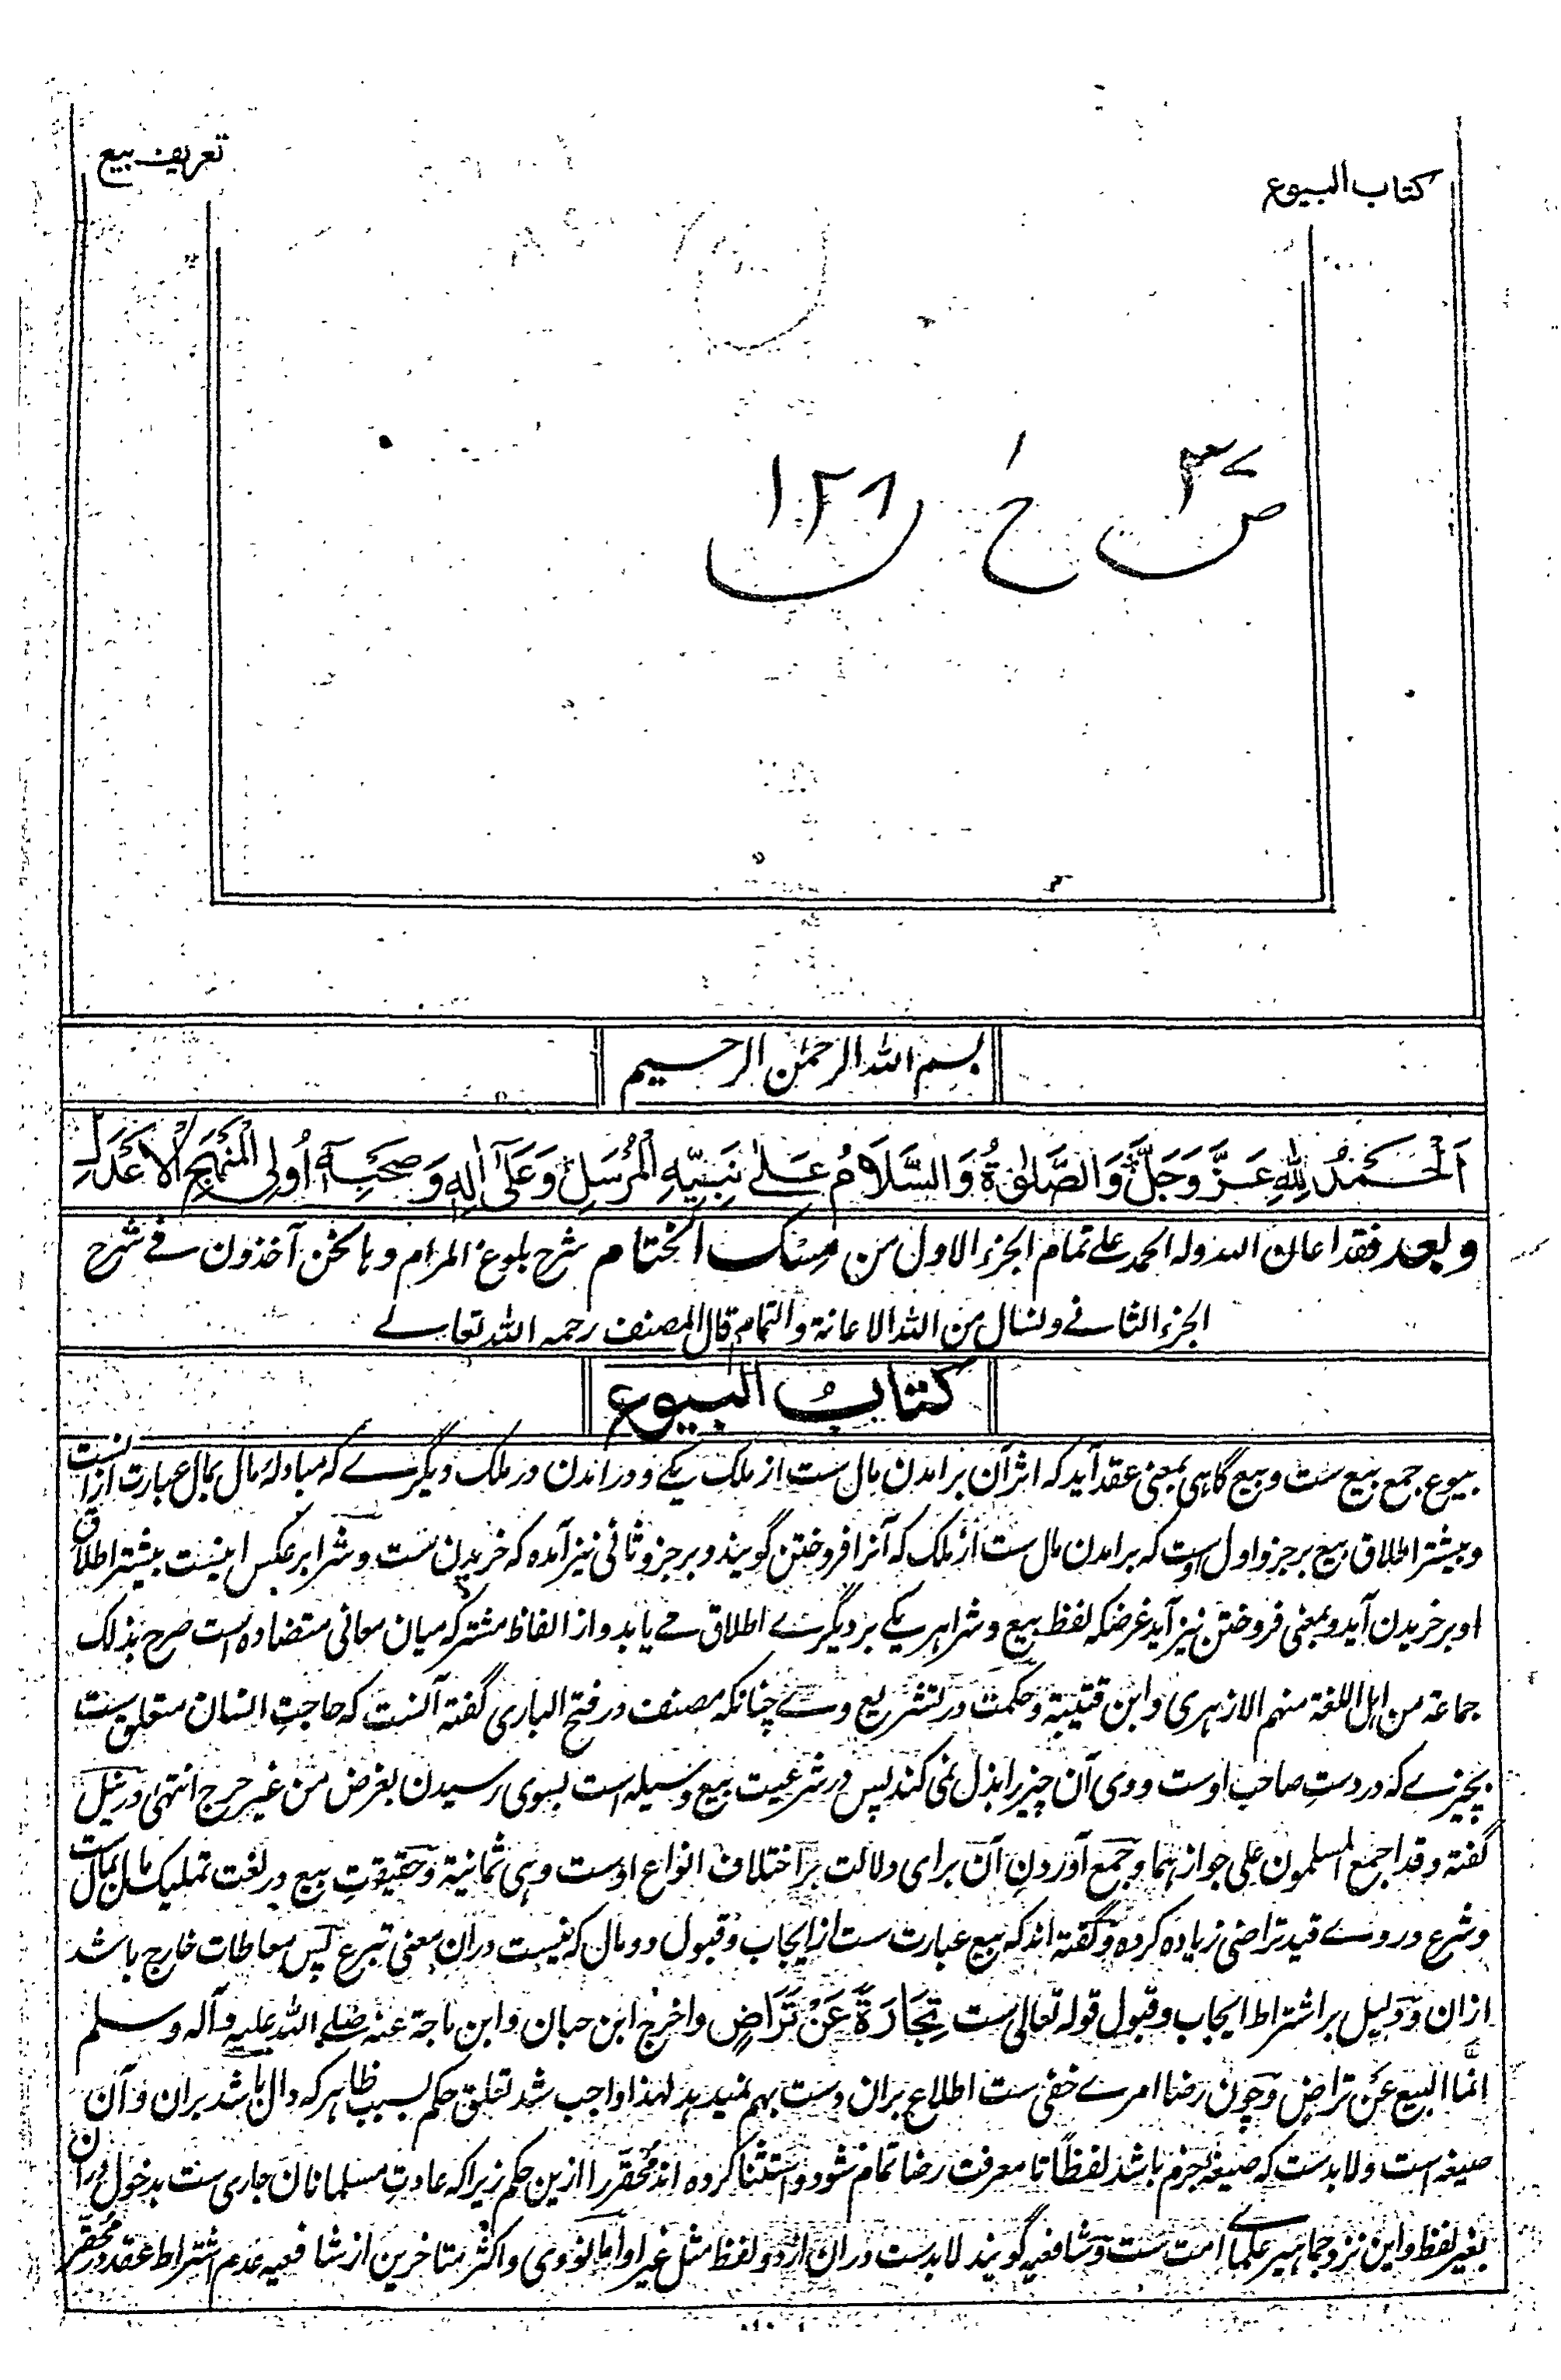 کتاب البیوع
تعریف بیع
بسم اللہ الرحمن الرحیم
اَلْحَمْدُ لِلّٰهِ عَزَّ وَجَلَّ وَالصَّلٰوةُ وَالسَّلَامُ عَلٰى نَبِيِّهِ الْمُرْسَلِ وَعَلٰٓى اٰلِهٖ وَصَحْبِهٖ اُولِى الْمَنْهَجِ الْاَعْدَلِ
وبعد فقد اعان اللہ ولہ الحمد علے تمام الجزء الاول من مسک الختام شرح بلوغ المرام وہا نحن آخذون فے شرح
الجزء الثانے ونسال من اللہ الاعانة والتمام قال المصنف رحمہ اللہ تعالے
کتابُ البیوع
بیوع جمع بیع ست و بیع گاہی بمعنی عقد آید کہ اثر آن برامدن مال ست از ملک یکے و درامدن در ملک دیگرے کہ مبادلۂ مال بمال عبارت ازانست
و بیشتر اطلاق بیع بر جزو اول اوست کہ برامدن مال ست از ملک کہ آنرا فروختن گویند و بر جزو ثانی نیز آمدہ کہ خریدن ست و شرا برعکس اینست بیشتر اطلاق
او بر خریدن آید و بمعنی فروختن نیز آید غرضکہ لفظ بیع و شرا ہر یکے بر دیگرے اطلاق مے یابد و از الفاظ مشترکہ میان معانی متضادہ است صرح بذلک
جماعة من اہل اللغة منہم الازہری و ابن قتیبة و حکمت در تشریع وے چنانکہ مصنف در فتح الباری گفتہ آنست کہ حاجتِ انسان متعلق ست
بچیزے کہ در دستِ صاحب اوست و وی آن چیز را بذل نمی کند پس در شرعیت بیع وسیلہ است بسوی رسیدن بغرض من غیر حرج انتہی در نیل
گفتہ وقد اجمع المسلمون علی جوازہما و جمع آوردنِ آن برای دلالت بر اختلاف انواع اوست وہی ثمانیة و حقیقتِ بیع در لغت تملیک مال بمال ست
و شرع در وے قید تراضی زیادہ کردہ و گفتہ اند کہ بیع عبارت ست از ایجاب و قبول در دو مال کہ نیست دران معنی تبرع پس معاطات خارج باشد
ازان و دلیل بر اشتراط ایجاب و قبول قولہ تعالی ست تِجَارَةً عَنْ تَرَاضٍ و اخرج ابن حبان و ابن ماجة عنہ صلے اللہ علیہ وآلہ وسلم
انما البیع عن تراض و چون رضا امرے خفی ست اطلاع بران دست بہم نمیدہد لہذا واجب شد تعلق حکم بسبب ظاہر کہ دال باشد بران و آن
صیغہ است و لابدست کہ صیغہ بجزم باشد لفظاً تا معرفت رضا تمام شود و استثنا کردہ اند محقر را ازین حکم زیرا کہ عادتِ مسلمانان جاری ست بدخول دران
بغیر لفظ و این نزد جماہیر علماے امت ست و شافعیہ گویند لابدست دران از دو لفظ مثل غیر او اما نووی و اکثر متاخرین از شافعیہ عدم اشتراط عقد در محقر